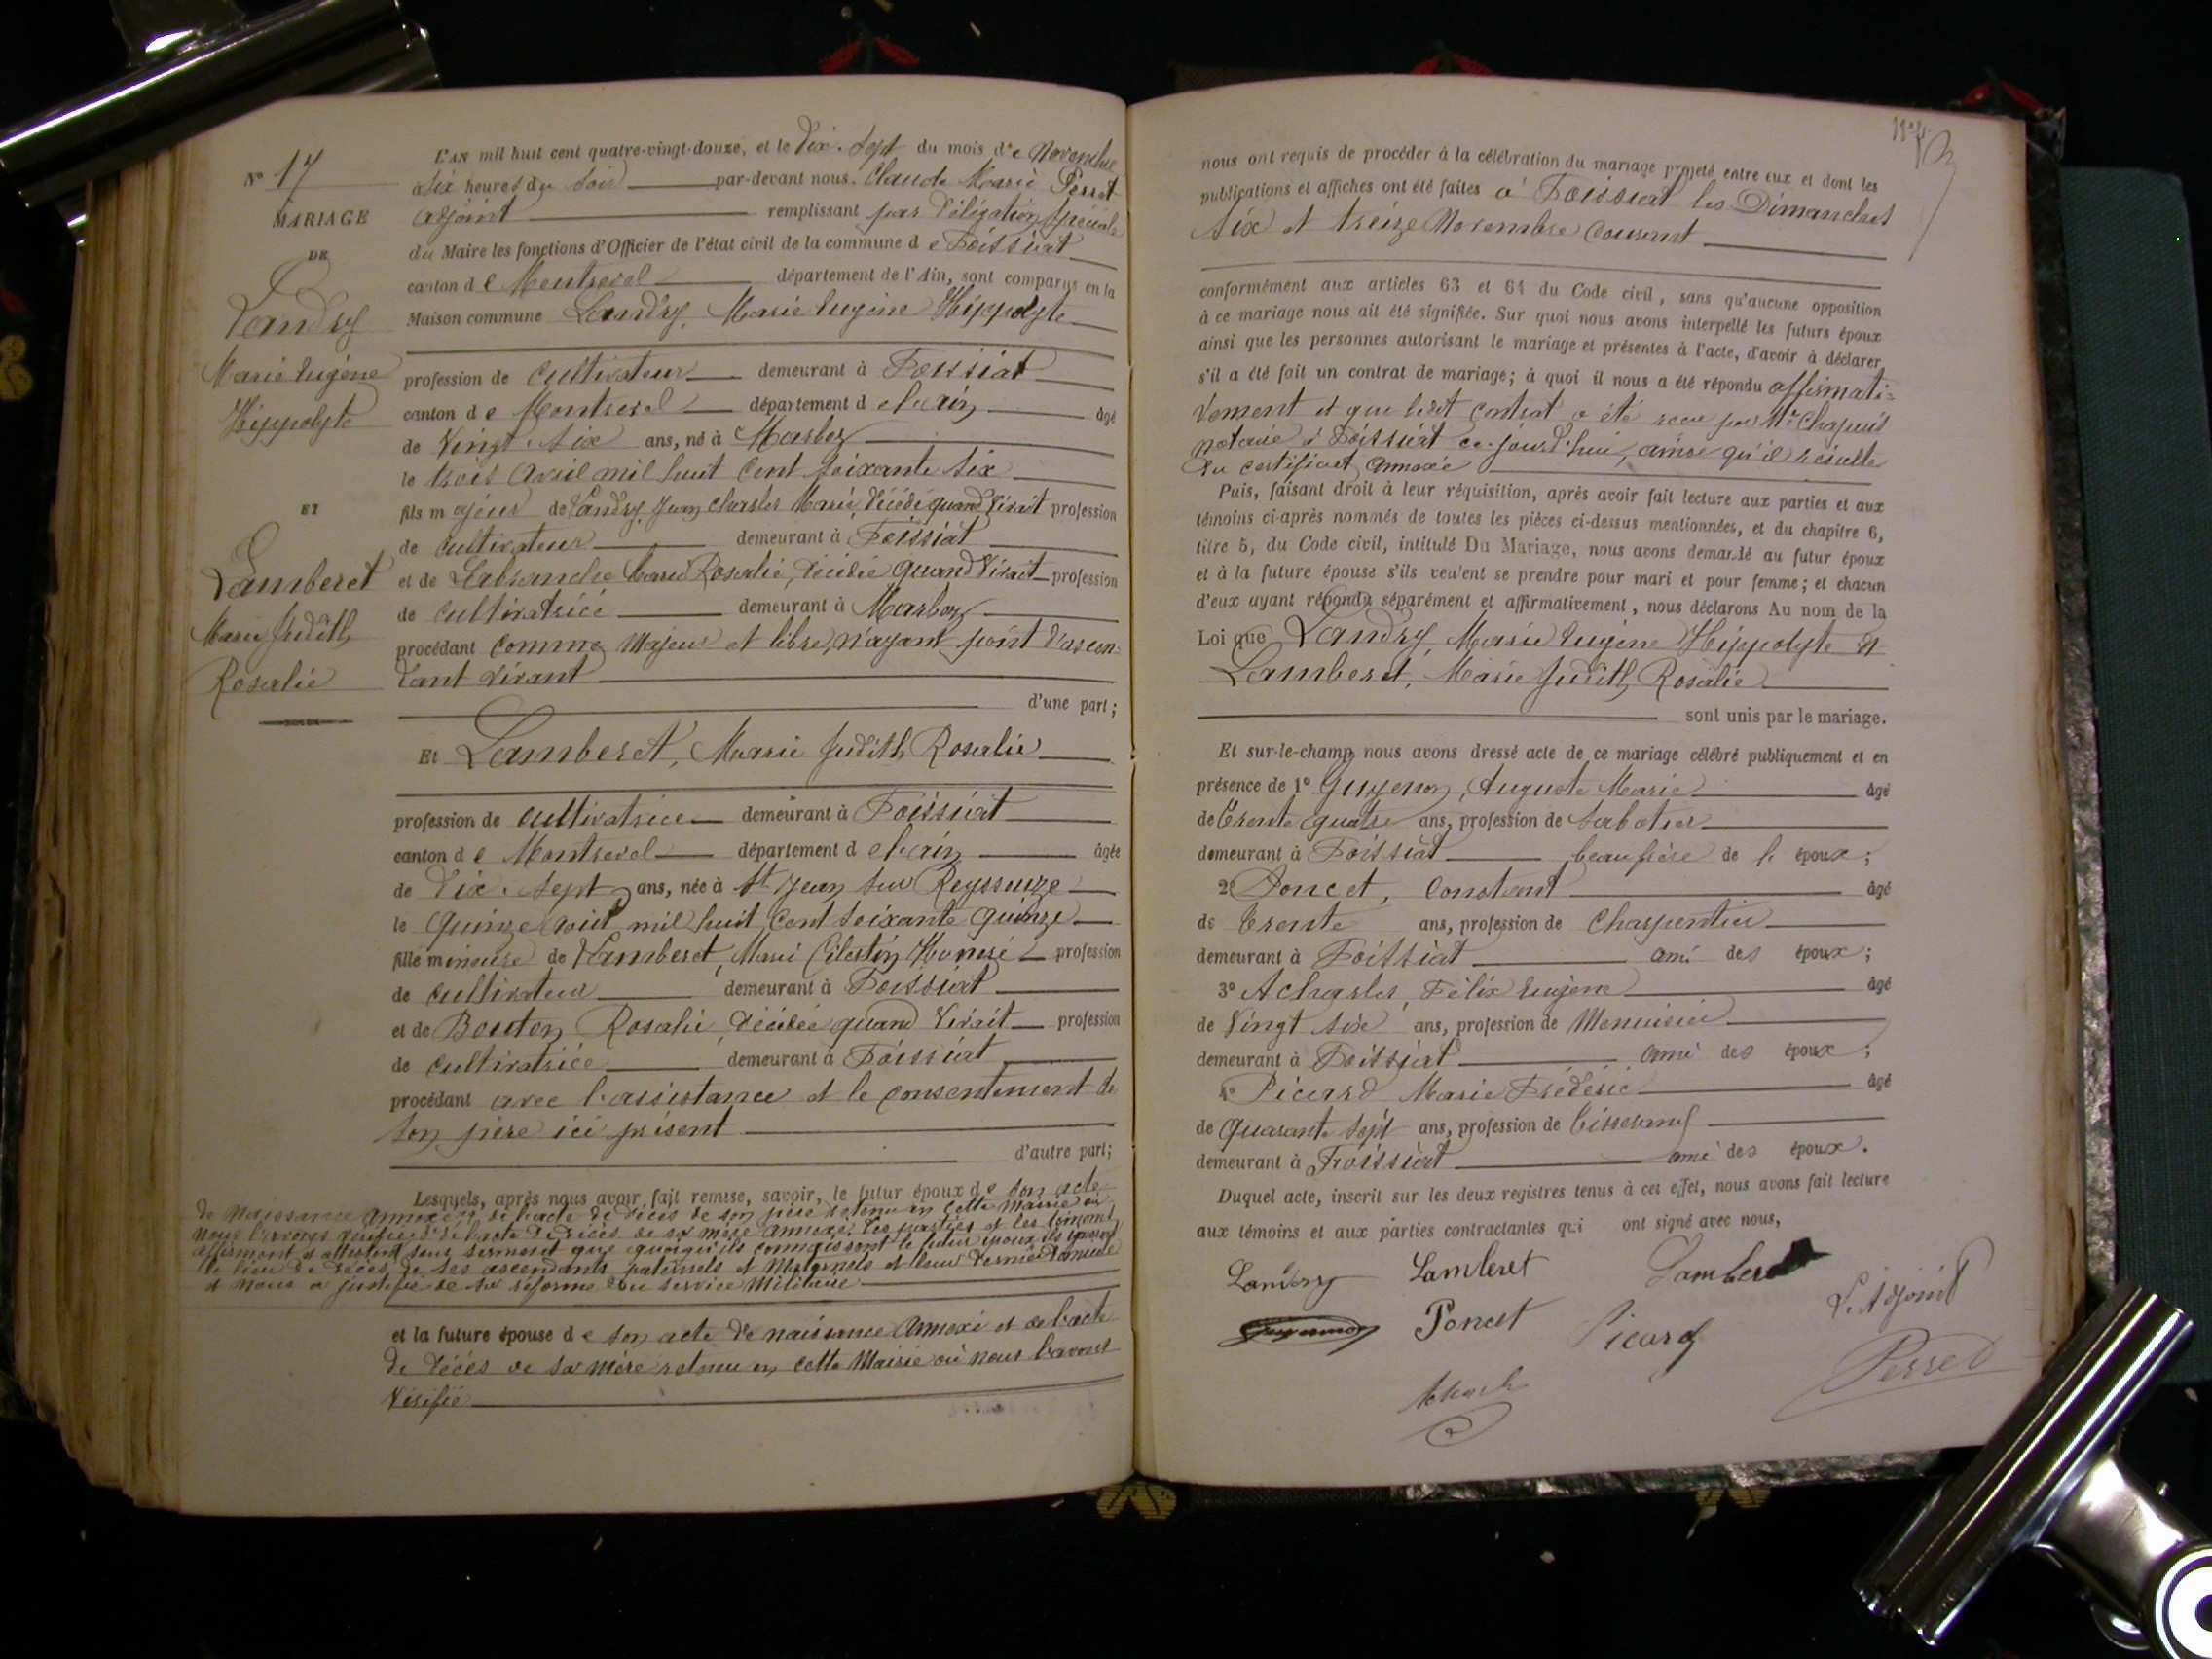 L'AN mil huit cent quatre-vingt-douze, et le dix-sept du mois de Novembre
N° 17
à six heures du soir par-devant nous Claude Marie Perret
MARIAGE
adjoint remplissant par délégation spéciale
DE
du Maire les fonctions d'Officier de l'état civil de la commune de Foissiat
canton de Montrevel département de l'Ain, sont comparus en la
Landry
Maison commune Landry, Marie Eugène Hippolyte
Marie Eugène
profession de Cultivateur demeurant à Foissiat
Hippolyte
canton de Montrevel département de l'ain âgé
de Vingt-six ans, né à Marboz
le trois avril mil huit cent soixante six
ET
fils majeur de Landry, Jean Charles Marie, décédé quand vivait profession
de cultivateur demeurant à Foissiat
Lamberet
et de Labranche Marie Rosalie, décédée quand vivait profession
de cultivatrice demeurant à Marboz
Marie Judith
procédant comme majeur et libre, n'ayant point d'ascen-
Rosalie
dant vivant
d'une part;
Et Lamberet, Marie Judith Rosalie
profession de cultivatrice demeurant à Foissiat
canton de Montrevel département de l'ain âgée
de dix-sept ans, née à St Jean sur Reyssouze
le quinze août mil huit cent soixante quinze
fille mineure de Lamberet, Marie Célestin Honoré profession
de cultivateur demeurant à Foissiat
et de Bouton Rosalie, décédée quand vivait profession
de cultivatrice demeurant à Foissiat
procédant avec l'assistance et le consentement de
son père ici présent
d'autre part;
Lesquels, après nous avoir fait remise, savoir, le futur époux de son acte
de naissance annexé, de l'acte de décès de son père retenu en cette mairie où
nous l'avons vérifié, de l'acte de décès de sa mère annexé. Les parties et les témoins
affirment et attestent sous serment que quoiqu'ils connaissent le futur époux ils ignorent
le lieu de décès de ses ascendants paternels et maternels et leur dernier domicile
et nous a justifié de sa réforme du service militaire
et la future épouse de son acte de naissance annexé et de l'acte
de décès de sa mère retenu en cette Mairie où nous l'avons
vérifié
nous ont requis de procéder à la célébration du mariage projeté entre eux et dont les
publications et affiches ont été faites à Foissiat les Dimanches
six et treize Novembre courant
conformément aux articles 63 et 64 du Code civil, sans qu'aucune opposition
à ce mariage nous ait été signifiée. Sur quoi nous avons interpellé les futurs époux
ainsi que les personnes autorisant le mariage et présentes à l'acte, d'avoir à déclarer
s'il a été fait un contrat de mariage; à quoi il nous a été répondu affirmati-
vement et que ledit contrat a été reçu par Me Chapuis
notaire à Foissiat ce-jourd'hui, ainsi qu'il résulte
du certificat annexé
Puis, faisant droit à leur réquisition, après avoir fait lecture aux parties et aux
témoins ci-après nommés de toutes les pièces ci-dessus mentionnées, et du chapitre 6,
titre 5, du Code civil, intitulé Du Mariage, nous avons demandé au futur époux
et à la future épouse s'ils veulent se prendre pour mari et pour femme; et chacun
d'eux ayant répondu séparément et affirmativement, nous déclarons Au nom de la
Loi que Landry, Marie Eugène Hippolyte et
Lamberet, Marie Judith Rosalie
sont unis par le mariage.
Et sur-le-champ nous avons dressé acte de ce mariage célébré publiquement et en
présence de 1° Guyennon, Auguste Marie âgé
de trente quatre ans, profession de sabotier
demeurant à Foissiat beau frère de l'époux;
2° Poncet, Constant âgé
de trente ans, profession de charpentier
demeurant à Foissiat ami des époux;
3° Acharles, Félix Eugène âgé
de Vingt six ans, profession de Menuisier
demeurant à Foissiat ami des époux;
4° Picard Marie Frédéric âgé
de quarante sept ans, profession de tisserand
demeurant à Foissiat ami des époux.
Duquel acte, inscrit sur les deux registres tenus à cet effet, nous avons fait lecture
aux témoins et aux parties contractantes qui ont signé avec nous,
Landry Lamberet Lamberet
L'Adjoint
Guyennon Poncet Picard
Perret